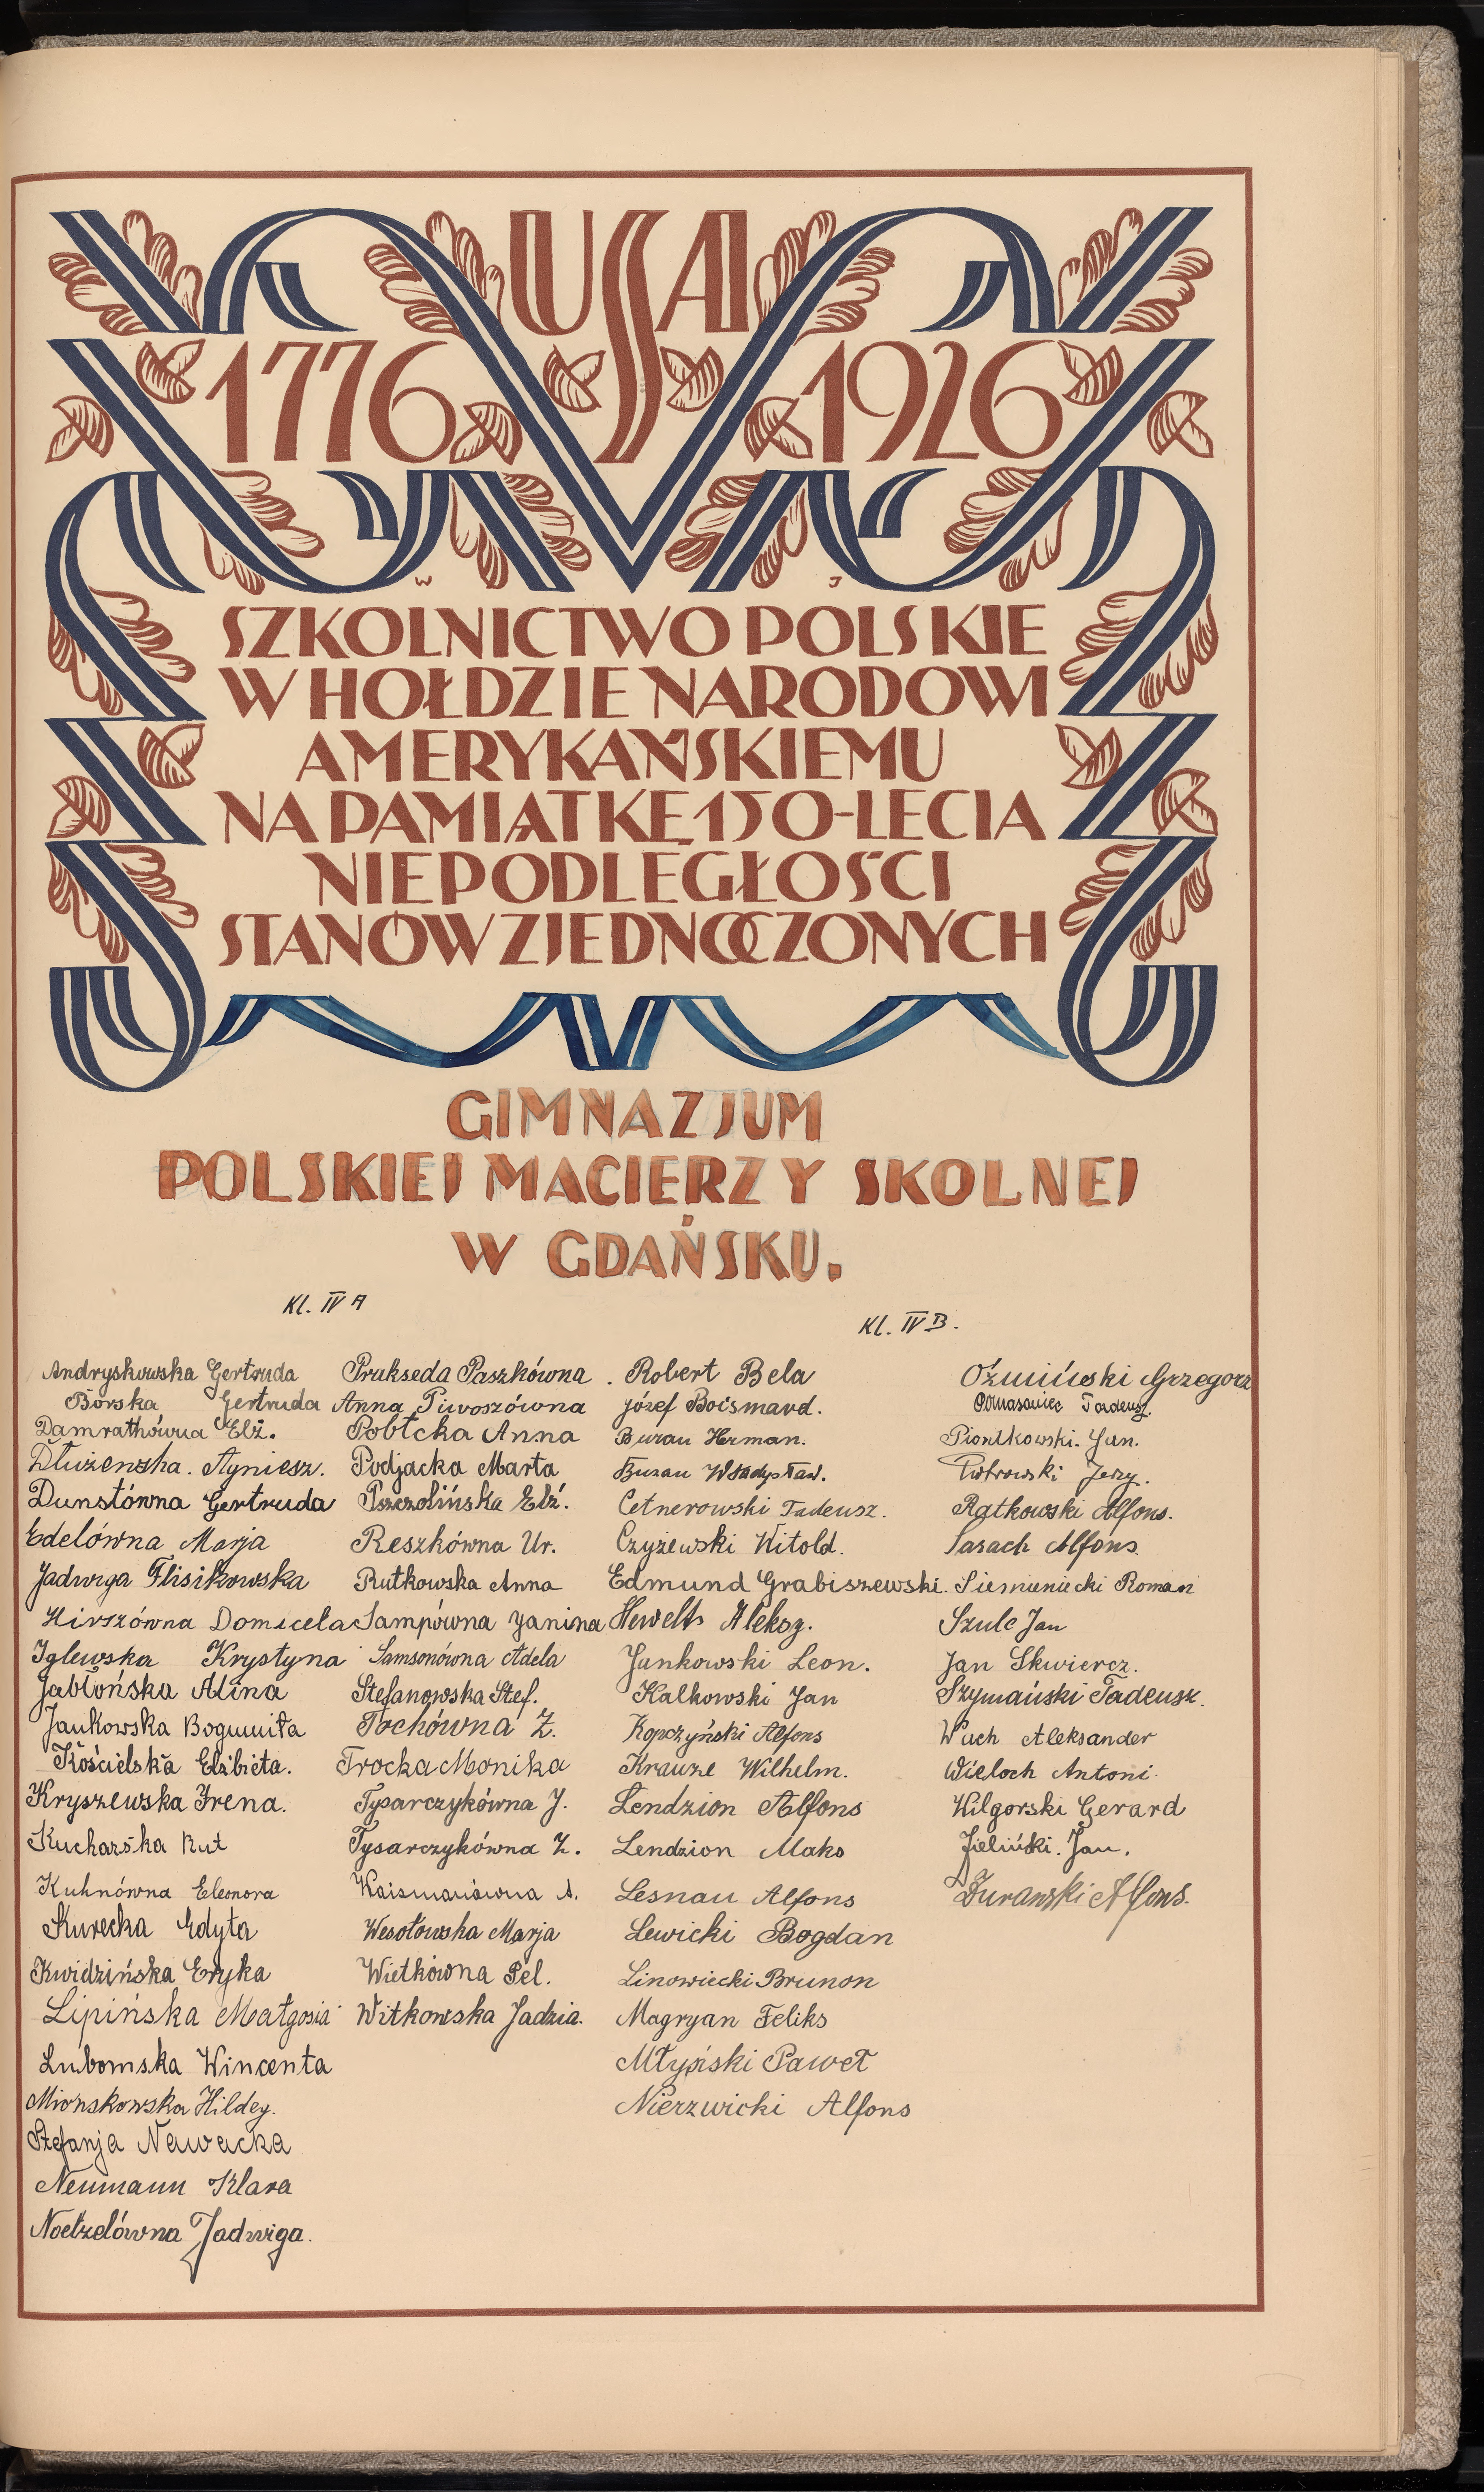 USA
1776 1926
W J
SZKOLNICTWO POLSKIE
W HOŁDZIE NARODOWI
AMERYKAŃSKIEMU
NA PAMIĄTKĘ 150-LECIA
NIEPODLEGŁOŚCI
STANÓW ZJEDNOCZONYCH
GIMNAZJUM
POLSKIEJ MACIERZY SKOLNEJ
W GDAŃSKU.
Kl. IV A
Andryskowska Gertruda
Borska Gertruda
Damrathówna Elż.
Dłużenska. Agniesz.
Dunstówna Gertruda
Edelówna Marja
Jadwiga Flisikowska
Hirszówna Domicela
Iglewska Krystyna
Jabłońska Alina
Jankowska Bogumiła
Kościelska Elżbieta.
Kryszewska Irena.
Kucharska Rut
Kuhnówna Eleonora
Kurecka Edyta
Kwidzińska Eryka
Lipińska Małgosia
Lubomska Wincenta
Mionskowska Hildeg.
Stefanja Nawacka
Neumann Klara
Noetzelówna Jadwiga.
Prakseda Paszkówna.
Anna Piwoszówna
Pobłcka Anna
Podjacka Marta
Pszczolińska Elż.
Reszkówna Ur.
Rutkowska Anna
Sampówna Janina
Samsonówna Adela
Stefanowska Stef.
Tochówna Z.
Trocka Monika
Tysarczykówna J.
Tysarczykówna Z.
A.
Wesołowska Marja
Wietkówna Pel.
Witkowska Jadzia.
Kl. IV B.
Robert Bela
Józef Boismard.
Burau Herman.
Burau Władysław.
Cetnerowski Tadeusz.
Czyżewski Witold.
Edmund Grabiszewski.
Hewelt Aleksg.
Jankowski Leon.
Kalkowski Jan
Kopczyński Alfons
Krauze Wilhelm.
Lendzion Alfons
Lendzion Maks
Lesnau Alfons
Lewicki Bogdan
Linowiecki Brunon
Magryan Feliks
Młyński Paweł
Nierzwicki Alfons
Oźmiński Grzegorz
Tadeusz.
Piontkowski. Jan.
Piotrowski Jerzy.
Ratkowski Alfons.
Sarach Alfons.
Siemieniecki Roman
Szulc Jan
Jan Skwiercz.
Szymański Tadeusz.
Wuch Aleksander
Wieloch Antoni.
Wilgorski Gerard
Zieliński. Jan.
Żurawski Alfons.